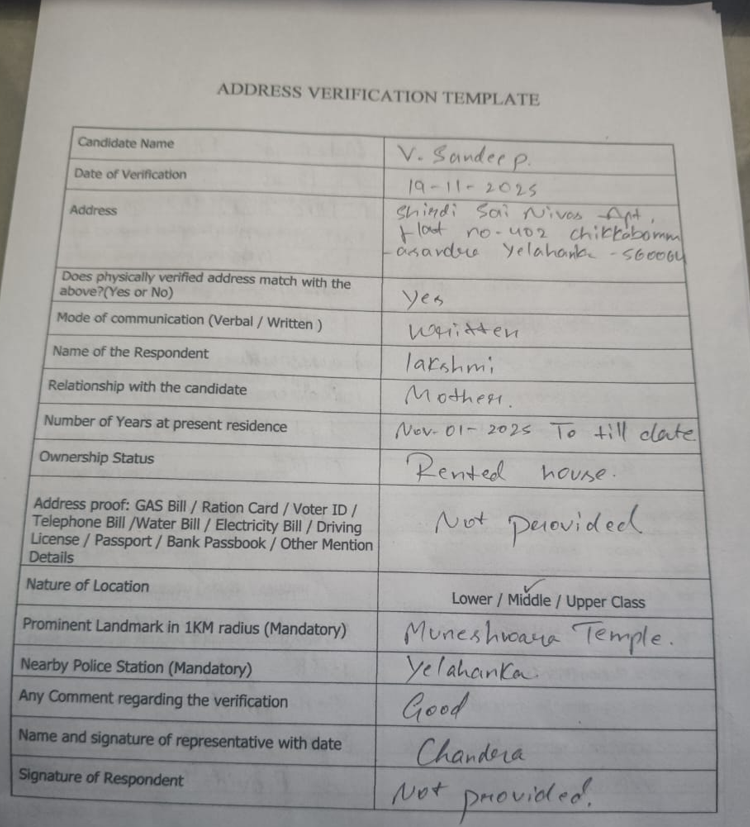 ADDRESS VERIFICATION TEMPLATE
Candidate Name V. Sandeep.
Date of Verification 19-11-2025
Address Shirdi Sai Nivas Apt,
flat no-402 chikkabomm
-asandra Yelahanka -560064
Does physically verified address match with the
above?(Yes or No) Yes
Mode of communication (Verbal / Written ) written
Name of the Respondent lakshmi
Relationship with the candidate Mother.
Number of Years at present residence Nov-01-2025 To till date
Ownership Status Rented house.
Address proof: GAS Bill / Ration Card / Voter ID /
Telephone Bill /Water Bill / Electricity Bill / Driving
License / Passport / Bank Passbook / Other Mention
Details Not provided
Nature of Location Lower / Middle / Upper Class
Prominent Landmark in 1KM radius (Mandatory) Muneshwara Temple.
Nearby Police Station (Mandatory) Yelahanka
Any Comment regarding the verification Good
Name and signature of representative with date Chandra
Signature of Respondent Not provided.